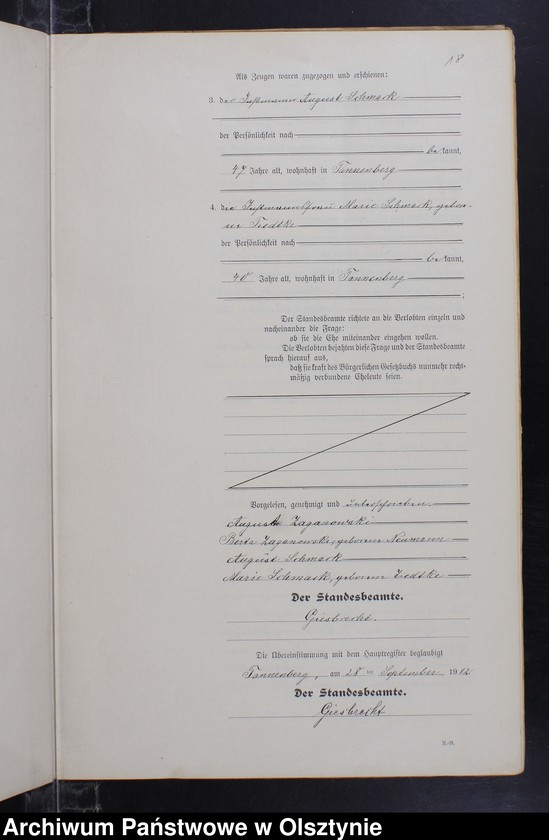 18
Als Zeugen waren zugezogen und erschienen:
3. der Instmann August Schmack
der Persönlichkeit nach
be kannt,
47 Jahre alt, wohnhaft in Tannenberg
4. die Instmannsfrau Marie Schmack, gebore-
ne Tiedtke
der Persönlichkeit nach
be kannt,
40 Jahre alt, wohnhaft in Tannenberg
;
Der Standesbeamte richtete an die Verlobten einzeln und
nacheinander die Frage:
ob sie die Ehe miteinander eingehen wollen.
Die Verlobten bejahten diese Frage und der Standesbeamte
sprach hierauf aus,
daß sie kraft des Bürgerlichen Gesetzbuchs nunmehr recht-
mäßig verbundene Eheleute seien.
Vorgelesen, genehmigt und unterschrieben.
August Zaganowski
Berta Zaganowski, geborene Neumann
August Schmack
Marie Schmack, geborene Tiedtke
Der Standesbeamte.
Giesbrecht.
Die Übereinstimmung mit dem Hauptregister beglaubigt
Tannenberg, am 28 ten September 1912
Der Standesbeamte.
Giesbrecht
Archiwum Państwowe w Olsztynie